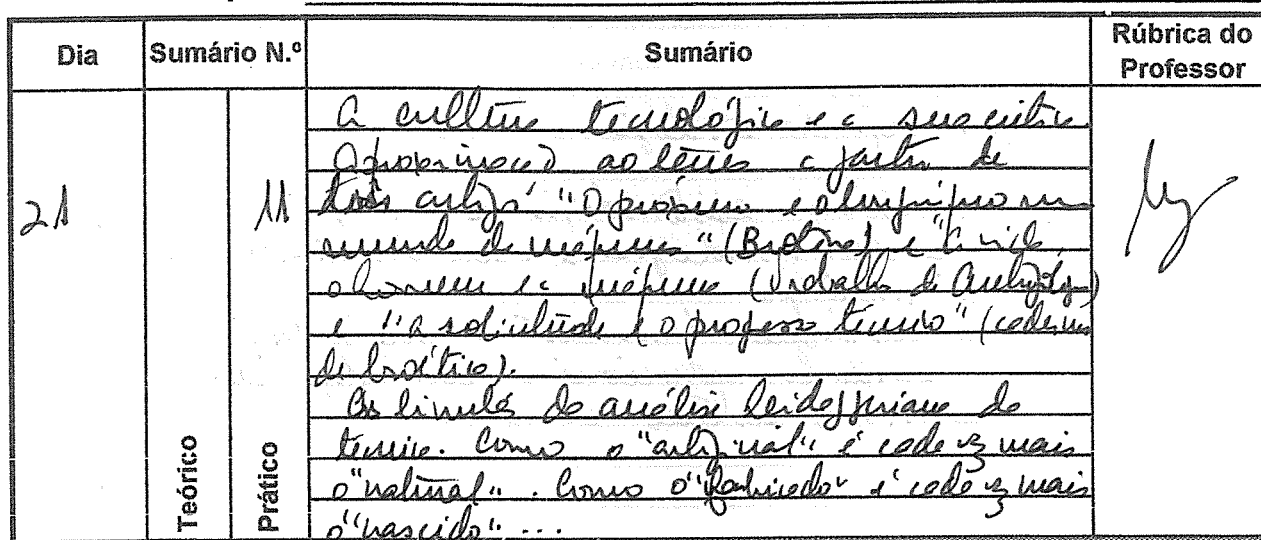 Dia Sumário N.º Sumário Rúbrica do Professor
21 11
Teórico Prático
A cultura tecnológica e a sua crítica.
Aproximação ao tema a partir de
três artigos "O próximo e o longínquo no
mundo de máquinas" (Brotéria) e "A vida,
o homem e a máquina (Trabalhos de Antropologia)
e "a solicitude e o progresso técnico" (cadernos
de bioética).
Os limites da análise heideggeriana da
técnica. Como o "artificial" é cada vez mais
o "natural". Como o "fabricado" é cada vez mais
o "nascido"...